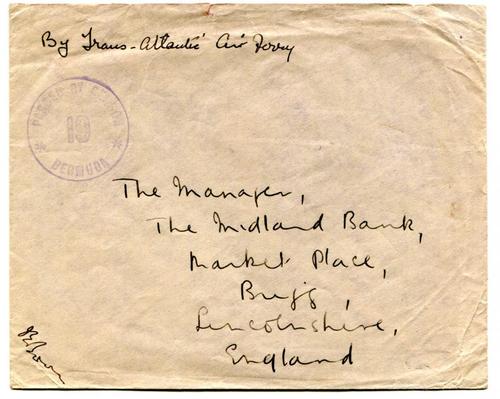 By Trans-Atlantic Air Ferry
PASSED BY CENSOR
10
BERMUDA
The Manager,
The Midland Bank,
Market Place,
Brigg,
Lincolnshire,
England